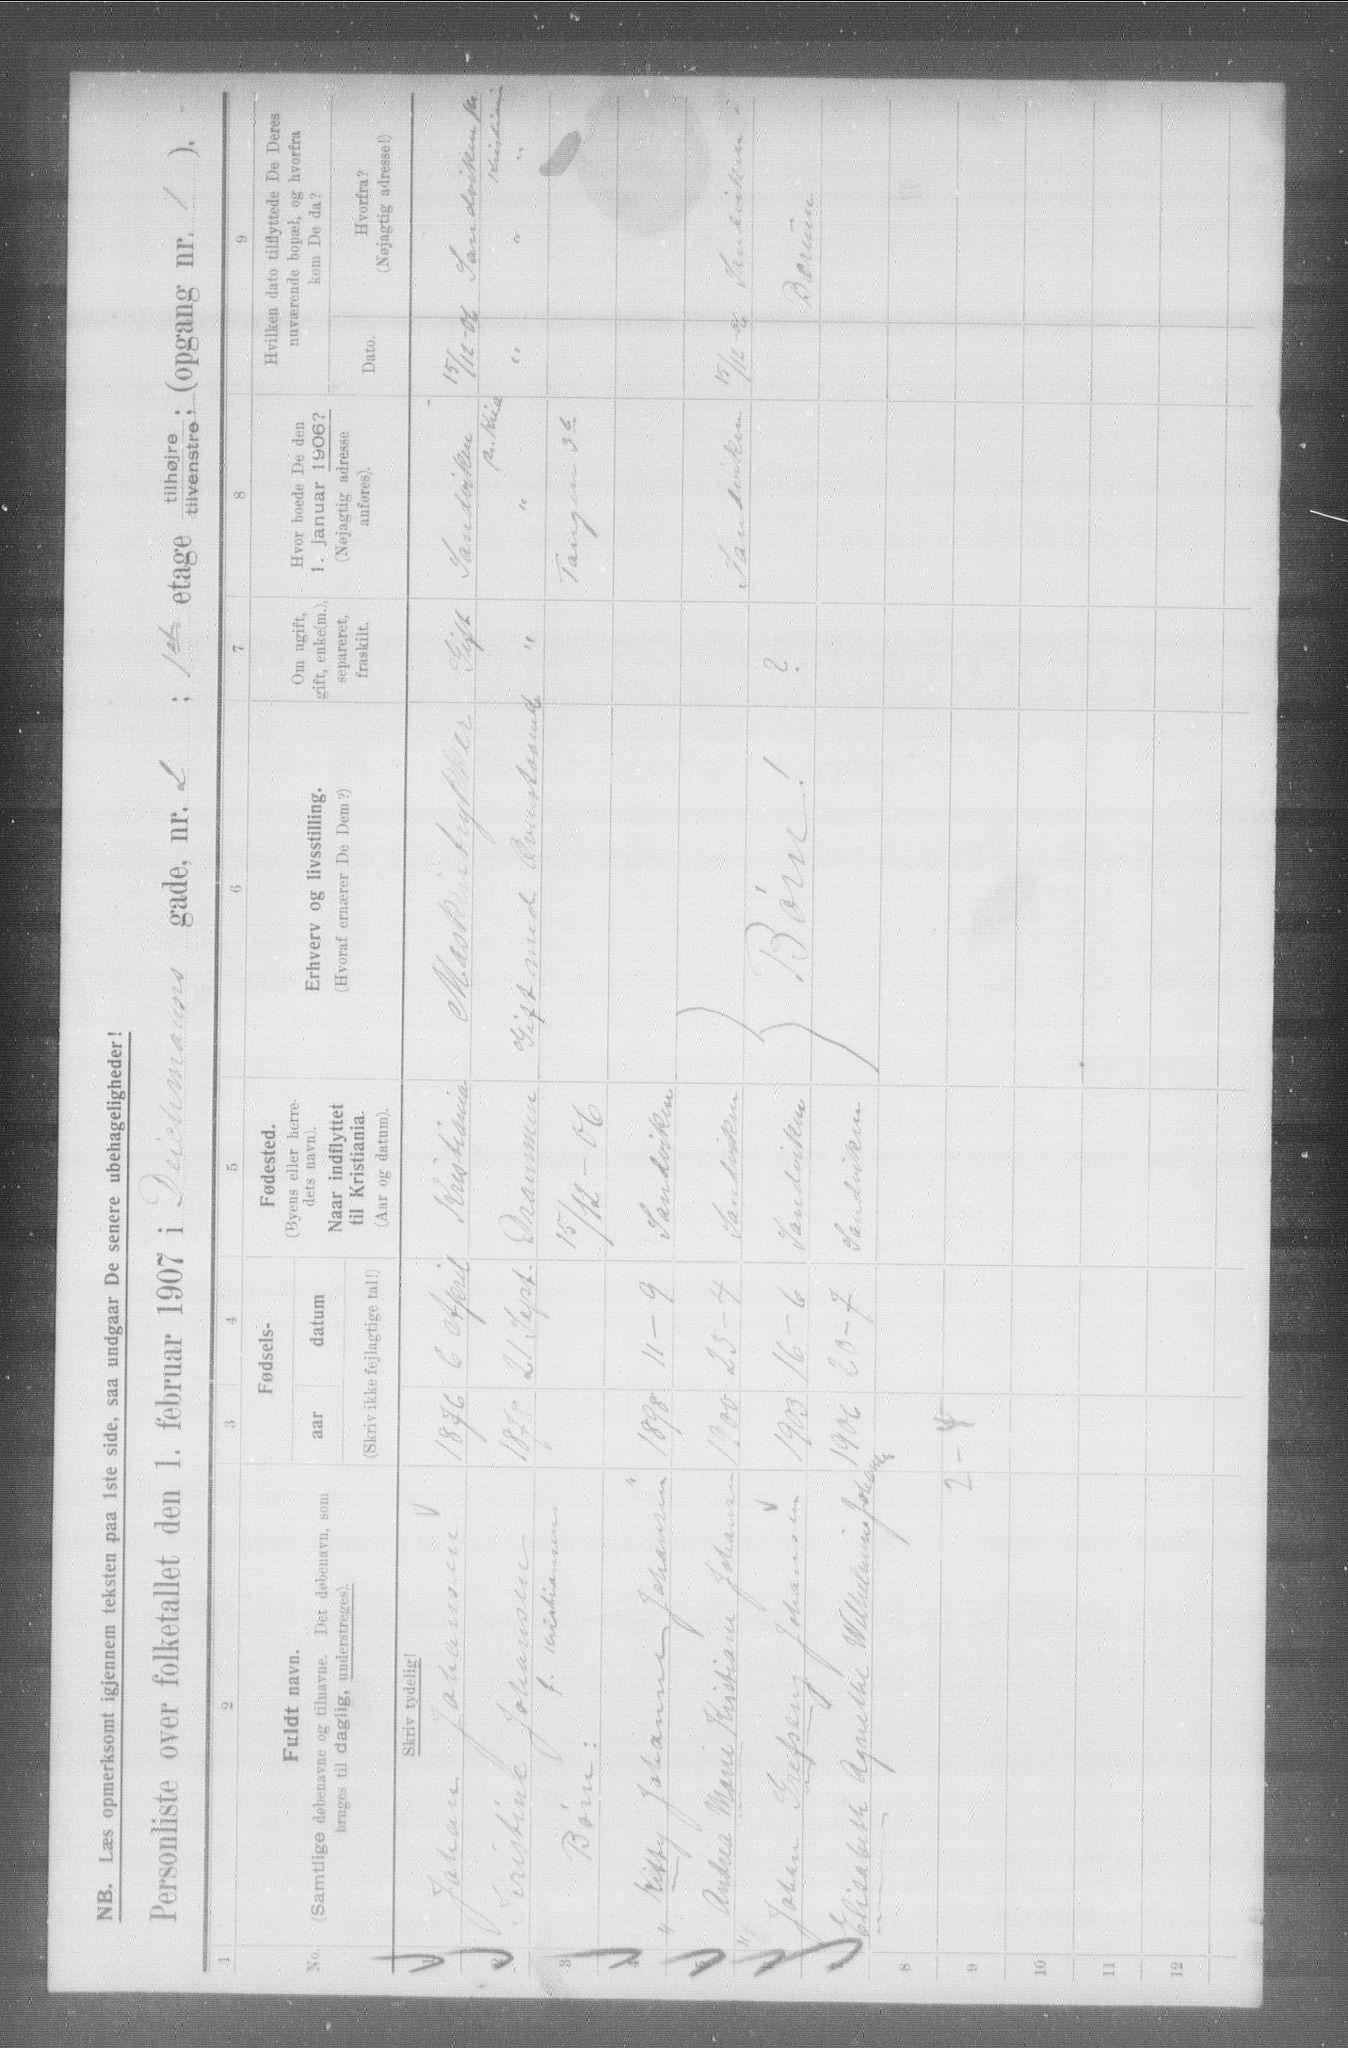 NB. Læs opmerksomt igjennem teksten paa 1ste side, saa undgaar De senere ubehageligheder!
Personliste over folketallet den 1. februar 1907 i Deichmanns gade, nr. 2 ; 1ste etage tilhøjre ; tilvenstre ; (opgang nr. 1 ).
1 2 3 4 5 6 7 8 9
No.
Fuldt navn.
(Samtlige døbenavne og tilnavne. Det døbenavn, som
bruges til daglig, understreges).
Fødsels-
aar datum
(Skriv ikke fejlagtige tal!)
Fødested.
(Byens eller herre-
dets navn).
Naar indflyttet
til Kristiania.
(Aar og datum).
Erhverv og livsstilling.
(Hvoraf ernærer De Dem?)
Om ugift,
gift, enke(m.),
separeret,
fraskilt.
Hvor boede De den
1. januar 1906?
(Nøjagtig adresse
anføres).
Hvilken dato tilflyttede De Deres
nuværende bopæl, og hvorfra
kom De da?
Dato.
Hvorfra?
(Nøjagtig adresse!)
Skriv tydelig!
1 Johan Johansen 1876 6 April Kristiania Maskintrykker Gift Sandviken 15/12-06 Sandviken
pr. Kria Kristiania
2 Kristine Johansen 21 Sept. Drammen Gift med Ovenstaaende " " " " "
f. Kristiansen
3 Børn: 15/12-06 Tangen 36
4 Kitty Johanne Johansen 1898 11-9 Sandviken
5 Andrea Marie Kristiane Johansen 1900 23-4 Sandviken Sandviken 15/12-06 Sandviken i
6 Johan Grefseng Johansen 1903 16-6 Sandviken Børn! ? Bærum
7 Elisabeth Agnethe Wilhelmine Johansen 1906 23-7 Sandviken
8
9 2-4
10
11
12